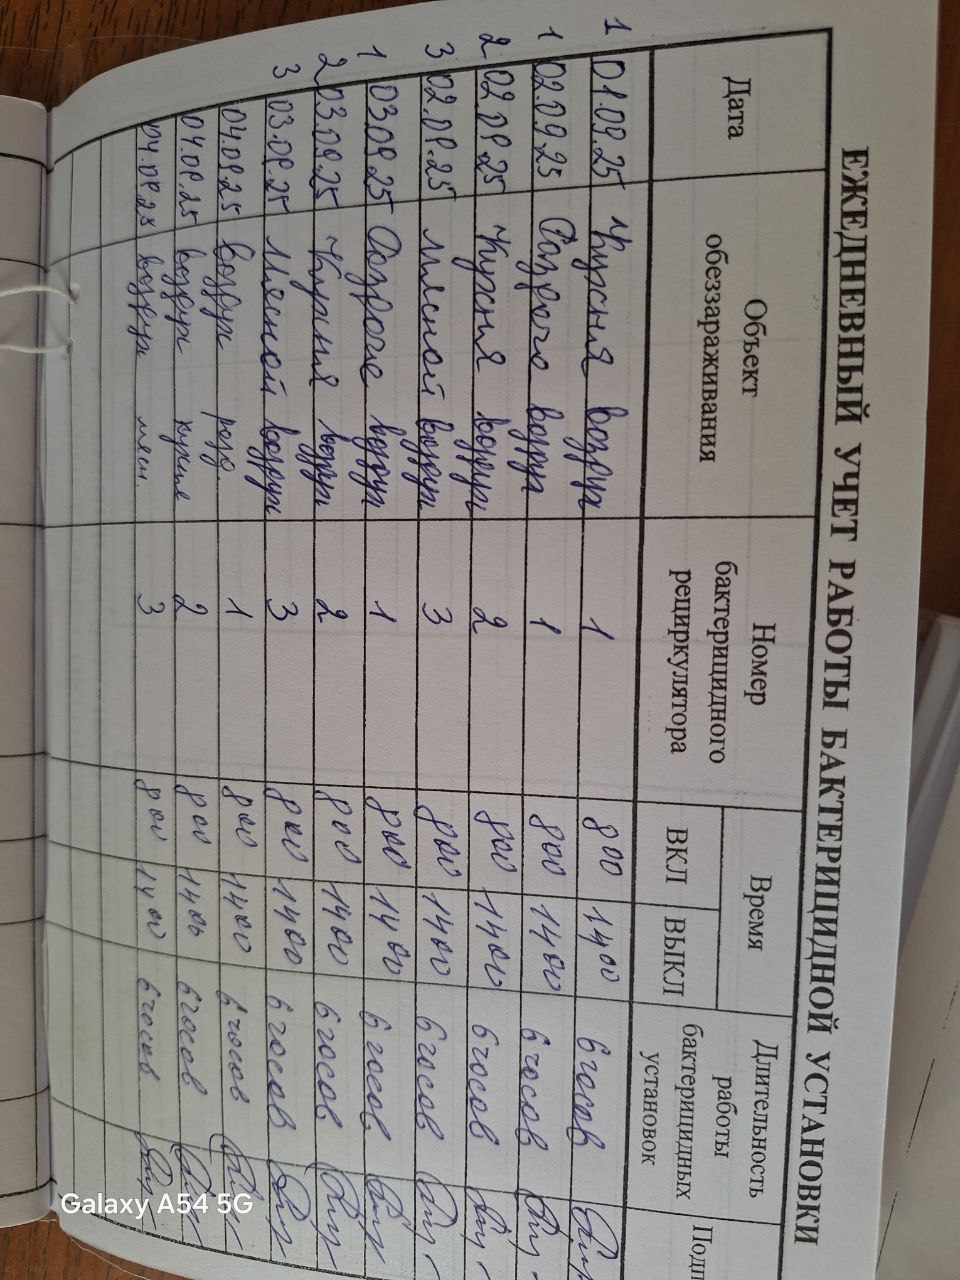 ЕЖЕДНЕВНЫЙ УЧЕТ РАБОТЫ БАКТЕРИЦИДНОЙ УСТАНОВКИ
Дата
Объект обеззараживания
Номер бактерицидного рециркулятора
Время
ВКЛ
ВЫКЛ
Длительность работы бактерицидных установок
Подп
1 01.09.25 Кухня воздух 1 800 1400 6 часов
1 02.09.25 воздух 1 800 1400 6 часов
2 02.09.25 Кухня воздух 2 800 1400 6 часов
3 02.09.25 Мясной воздух 3 800 1400 6 часов
1 03.09.25 воздух 1 800 1400 6 часов
2 03.09.25 Кухня воздух 2 800 1400 6 часов
3 03.09.25 Мясной воздух 3 800 1400 6 часов
04.09.25 Воздух 1 800 1400 6 часов
04.09.25 воздух кухня 2 800 1400 6 часов
04.09.25 воздух мясн. 3 800 1400 6 часов
Galaxy A54 5G